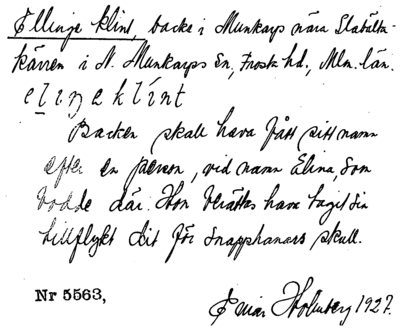 Ellinge klint, backe i Munkarp nära Slabälta-
kärren i N. Munkarps sn, Frosta hd., Mlm. län.
elinaklint
Backen skall hava fått sitt namn
efter en person, vid namn Elina, som
bodde där. Hon berättas hava tagit sin
tillflykt dit för snapphanars skull.
Nr 5563, Einar Holmberg 1927.